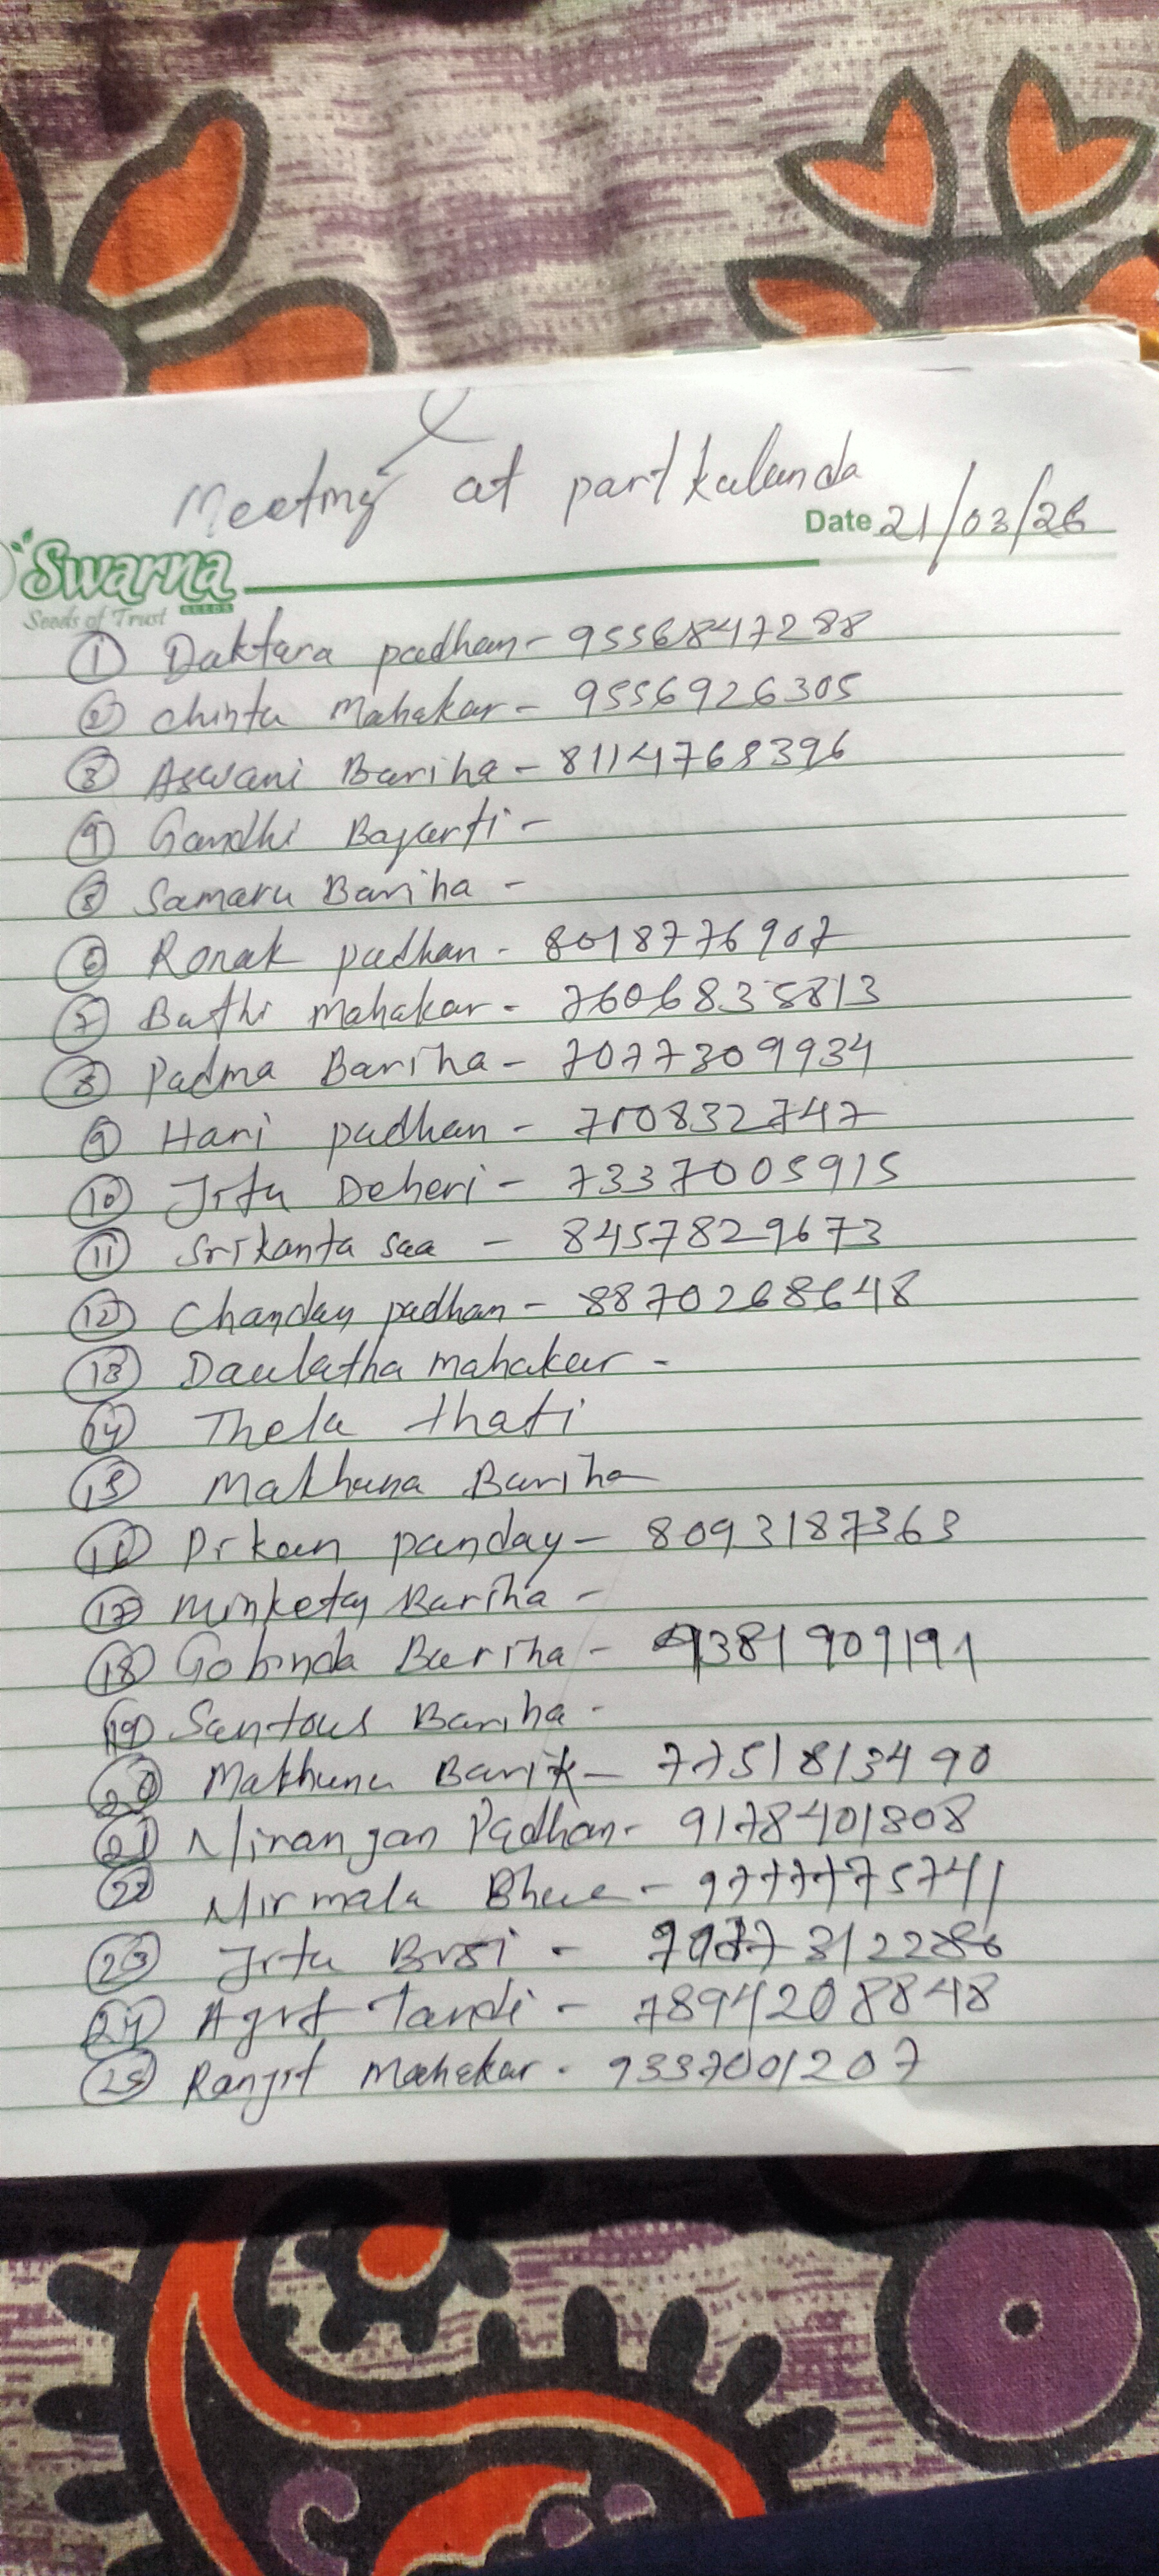 Meeting at partkalanda
Date 21/03/26
Swarna
Seeds of Trust SEEDS
① Daktara padhan - 9556847288
② chinta Mahakar - 9556926305
③ Aswani Bariha - 8114768396
④ Gandhi Bagarti -
⑤ Samaru Bariha -
⑥ Ronak padhan - 8018776907
⑦ Buthi Mahakar - 7606835813
⑧ Padma Bariha - 7077309934
⑨ Hari padhan - 710832747
⑩ Jitu Deheri - 7337005915
⑪ Srikanta saa - 8457829673
⑫ Chandan padhan - 8870268648
⑬ Daulatha mahakur -
⑭ Thela thati
⑮ Makhuna Bariha
⑯ panday - 8093187363
⑰ Minketan Bariha -
⑱ Gobinda Bariha - 9381909191
⑲ Santous Bariha -
⑳ Makhunu Barik - 7751813490
㉑ Niranjan Padhan - 9178401808
㉒ Nirmala Bhue - 9777775741
㉓ Jitu -
㉔ Agrt Tandi - 7894208848
㉕ Ranjit Mahakur - 9337001207